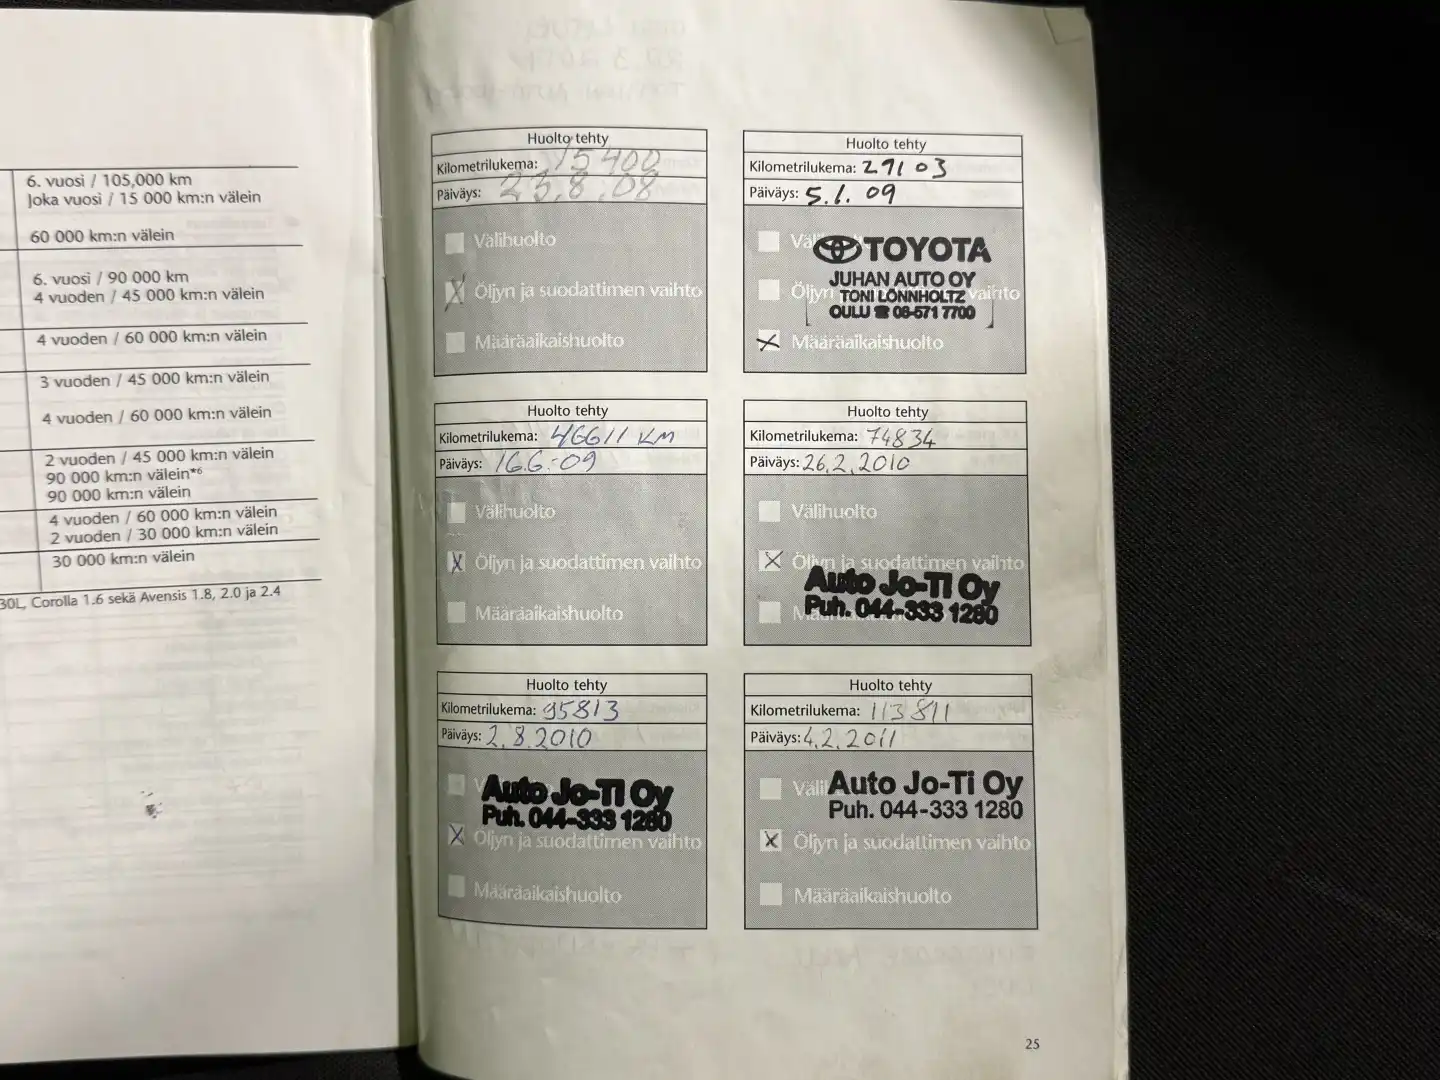 6. vuosi / 105,000 km
Joka vuosi / 15 000 km:n välein
60 000 km:n välein
6. vuosi / 90 000 km
4 vuoden / 45 000 km:n välein
4 vuoden / 60 000 km:n välein
3 vuoden / 45 000 km:n välein
4 vuoden / 60 000 km:n välein
2 vuoden / 45 000 km:n välein
90 000 km:n välein*6
90 000 km:n välein
4 vuoden / 60 000 km:n välein
2 vuoden / 30 000 km:n välein
30 000 km:n välein
30L, Corolla 1.6 sekä Avensis 1.8, 2.0 ja 2.4
Huolto tehty
Kilometrilukema: 15400
Päiväys: 23.8.08
Välihuolto
Öljyn ja suodattimen vaihto
Määräaikaishuolto
Huolto tehty
Kilometrilukema: 29103
Päiväys: 5.1.09
TOYOTA
JUHAN AUTO OY
TONI LÖNNHOLTZ
OULU ☎ 08-571 7700
Öljyn vaihto
Määräaikaishuolto
Huolto tehty
Kilometrilukema: 46611 KM
Päiväys: 16.6.-09
Välihuolto
Öljyn ja suodattimen vaihto
Määräaikaishuolto
Huolto tehty
Kilometrilukema: 74834
Päiväys: 26.2.2010
Välihuolto
Öljyn ja suodattimen vaihto
Auto Jo-Ti Oy
Puh. 044-333 1280
Huolto tehty
Kilometrilukema: 95813
Päiväys: 2.8.2010
Auto Jo-Ti Oy
Puh. 044-333 1280
Öljyn ja suodattimen vaihto
Määräaikaishuolto
Huolto tehty
Kilometrilukema: 113811
Päiväys: 4.2.2011
Väli
Auto Jo-Ti Oy
Puh. 044-333 1280
Öljyn ja suodattimen vaihto
Määräaikaishuolto
25